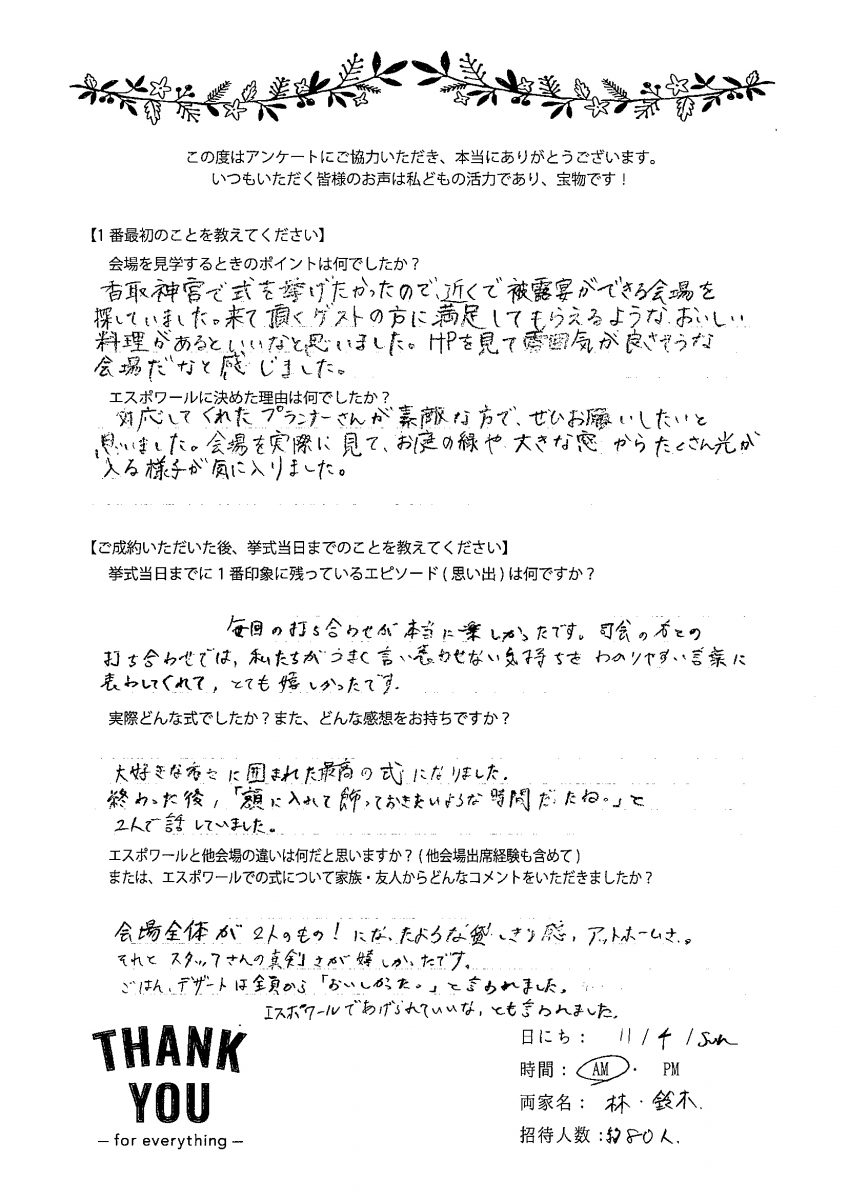 この度はアンケートにご協力いただき、本当にありがとうございます。
いつもいただく皆様のお声は私どもの活力であり、宝物です！
【1番最初のことを教えてください】
会場を見学するときのポイントは何でしたか？
香取神宮で式を挙げたかったので、近くで被露宴ができる会場を
探していました。来て頂くゲストの方に満足してもらえるようなおいしい
料理があるといいなと思いました。HPを見て雰囲気が良さそうな
会場だなと感じました。
エスポワールに決めた理由は何でしたか？
対応してくれたプランナーさんが素敵な方で、ぜひお願いしたいと
思いました。会場を実際に見て、お庭の緑や大きな窓からたくさん光が
入る様子が気に入りました。
【ご成約いただいた後、挙式当日までのことを教えてください】
挙式当日までに1番印象に残っているエピソード(思い出)は何ですか？
毎回の打ち合わせが本当に楽しかったです。司会の方との
打ち合わせでは、私たちがうまく言い表わせない気持ちをわかりやすい言葉に
表わしてくれて、とても嬉しかったです。
実際どんな式でしたか？また、どんな感想をお持ちですか？
大好きな方々に囲まれた最高の式になりました。
終わった後、「額に入れて飾っておきたいような時間だったね。」と
2人で話していました。
エスポワールと他会場の違いは何だと思いますか？(他会場出席経験も含めて)
または、エスポワールでの式について家族・友人からどんなコメントをいただきましたか？
会場全体が2人のもの！になったような貸しきり感、アットホームさ。
それとスタッフさんの真剣さが嬉しかったです。
ごはん、デザートは全員から「おいしかった。」と言われました。
エスポワールであげられていいな、とも言われました。
THANK
YOU
– for everything –
日にち： 11/4/Sun
時間：AM・PM
両家名：林・鈴木
招待人数：約80人.